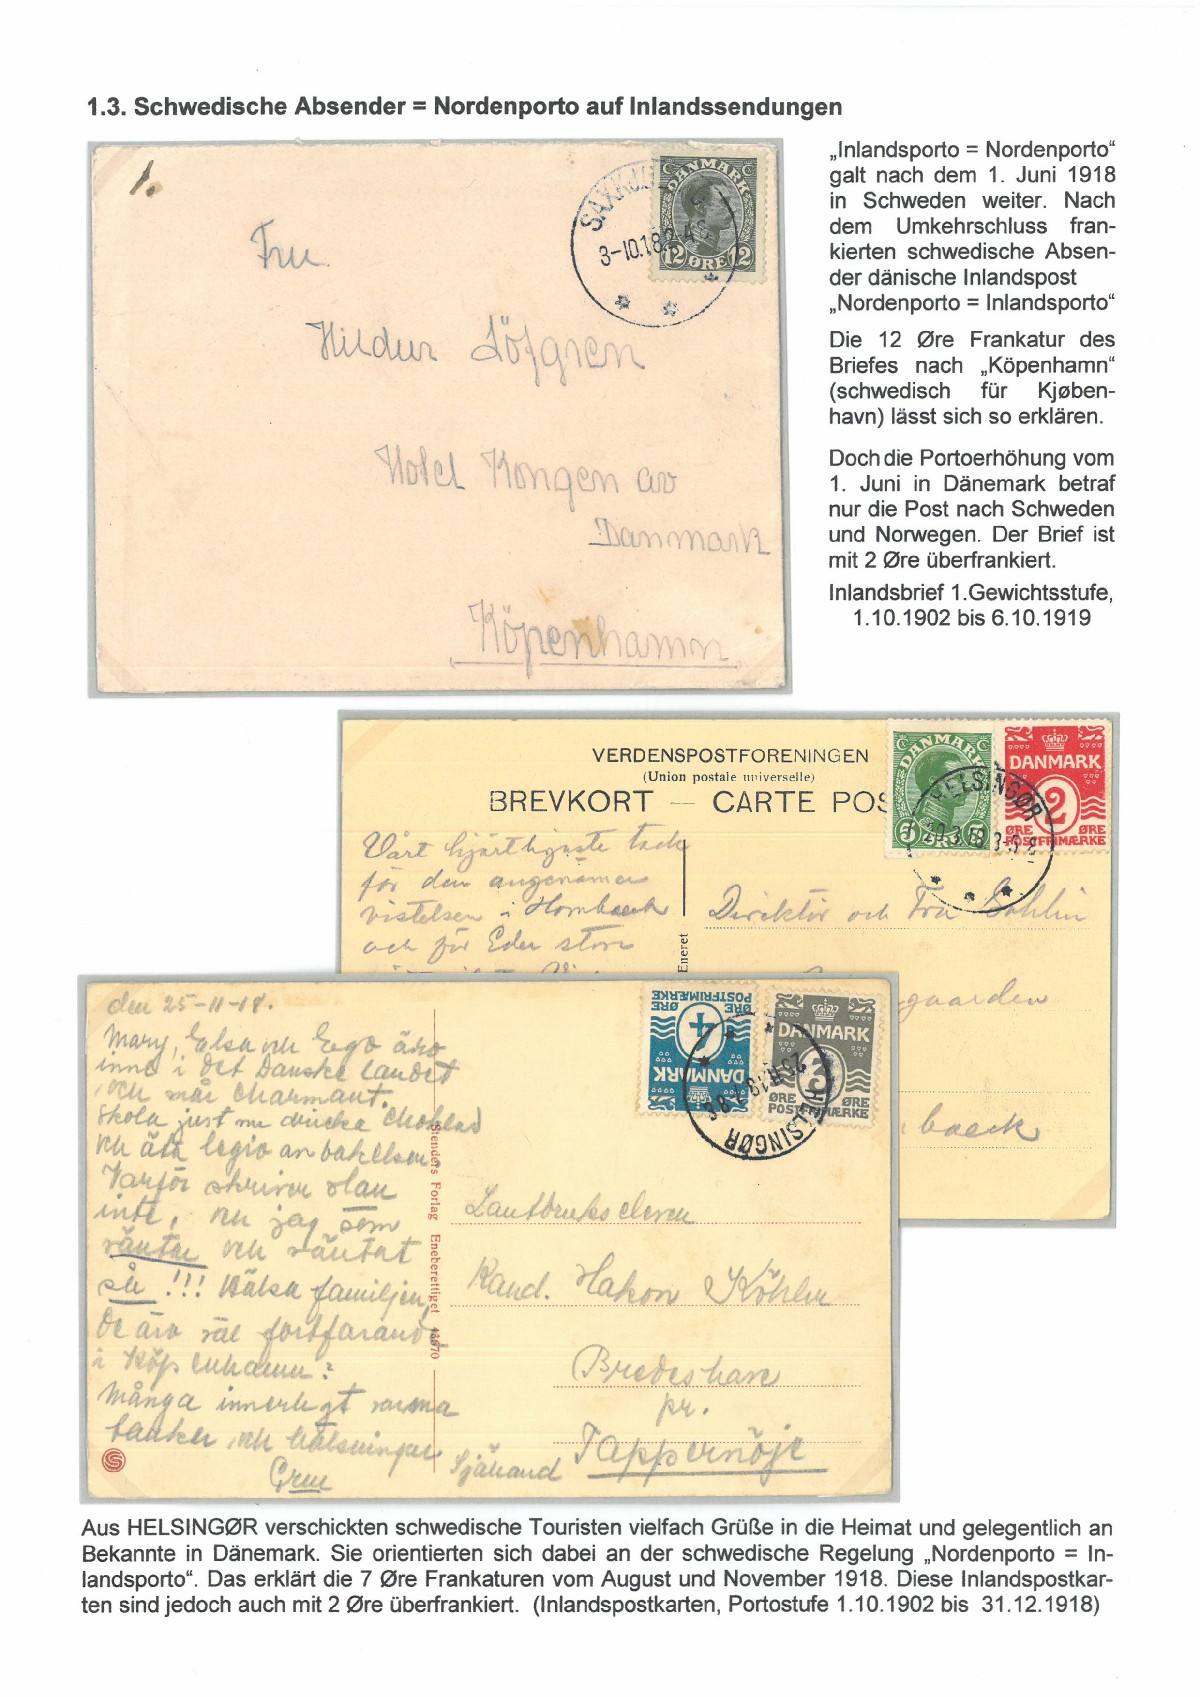 1.3. Schwedische Absender = Nordenporto auf Inlandssendungen
„Inlandsporto = Nordenporto“
galt nach dem 1. Juni 1918
in Schweden weiter. Nach
dem Umkehrschluss fran-
kierten schwedische Absen-
der dänische Inlandspost
„Nordenporto = Inlandsporto“
Die 12 Øre Frankatur des
Briefes nach „Köpenhamn“
(schwedisch für Kjøben-
havn) lässt sich so erklären.
Doch die Portoerhöhung vom
1. Juni in Dänemark betraf
nur die Post nach Schweden
und Norwegen. Der Brief ist
mit 2 Øre überfrankiert.
Inlandsbrief 1.Gewichtsstufe,
1.10.1902 bis 6.10.1919
1.
DANMARK
12 ØRE 12
3-10.18
Fru
Hildur Löfgren
Hotel Kongen av
Danmark
Köpenhamn
VERDENSPOSTFORENINGEN
(Union postale universelle)
BREVKORT — CARTE POS
DANMARK
5 ØRE
DANMARK
2
ØRE ØRE
POSTFRIMÆRKE
HELSINGØR
Vårt hjärtligaste tack
för den angenäma
vistelsen i Hornbaeck
och för Eder stora
Eneret
Direktör och Fru
gaarden
baeck
den 25-11-18.
Mary, Elsa och Ego äro
inne i det Danske landet
och mår charmant.
Skola just nu dricka choklad
och äta legio av bakelser
Varför skriver Han
inte, och jag som
väntar och väntat
så !!! Hälsa familjen,
De äro väl fortfarande
i Köpenhamn?
Många innerligt varma
tankar och hälsningar
Stenders Forlag Eneberettiget
DANMARK
4
ØRE ØRE
POSTFRIMÆRKE
DANMARK
3
ØRE ØRE
POSTFRIMÆRKE
HELSINGØR
Lantbrukseleven
Kand. Hakon Köhler
Bredeshave
pr.
Tappernöje
Själland
Aus HELSINGØR verschickten schwedische Touristen vielfach Grüße in die Heimat und gelegentlich an
Bekannte in Dänemark. Sie orientierten sich dabei an der schwedische Regelung „Nordenporto = In-
landsporto“. Das erklärt die 7 Øre Frankaturen vom August und November 1918. Diese Inlandspostkar-
ten sind jedoch auch mit 2 Øre überfrankiert. (Inlandspostkarten, Portostufe 1.10.1902 bis 31.12.1918)